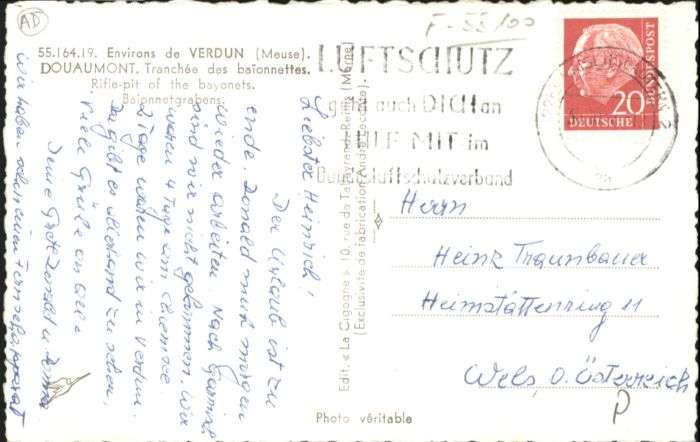 AD
F-55/00
55.164.19. Environs de VERDUN (Meuse).
DOUAUMONT. Tranchée des baïonnettes.
Rifle-pit of the bayonets.
Baionnetgrabens.
LUFTSCHUTZ
geht auch DICH an
HILF MIT im
Bundesluftschutzverband
20
DEUTSCHE
BUNDESPOST
Liebster Heinrich!
Der Urlaub ist zu
ende. Donald muß morgen
wieder arbeiten. Nach
sind wir nicht gekommen. Wir
waren 4 Tage am Chiemsee.
2 Tage waren wir in Verdun.
Da gibt es allerhand zu sehen.
Viele Grüße an alle
Deine
Wir haben schon einen Fernsehapparat
Edit. « La Cigogne » 10, rue de Reims (Marne)
(Exclusivité de fabrication André
Herrn
Heinz Traunbauer
Heimstättenring 11
Wels, O. Österreich
P
Photo véritable